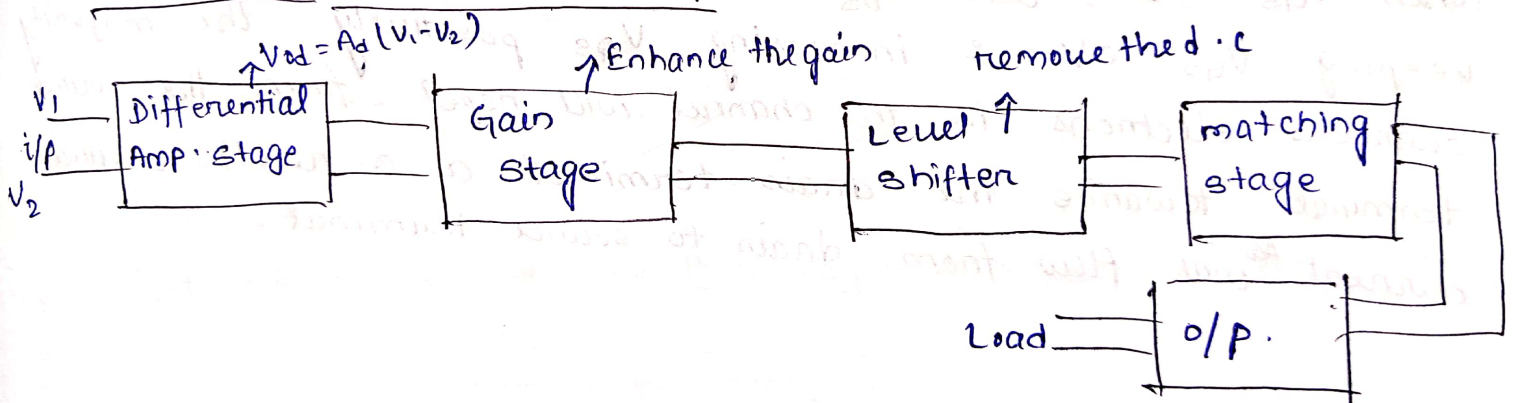 Vod = Ad (V1-V2)
Enhance the gain
remove the d.c
V1
i/p
V2
Differential
Amp. stage
Gain
stage
Level
shifter
matching
stage
Load
o/p.